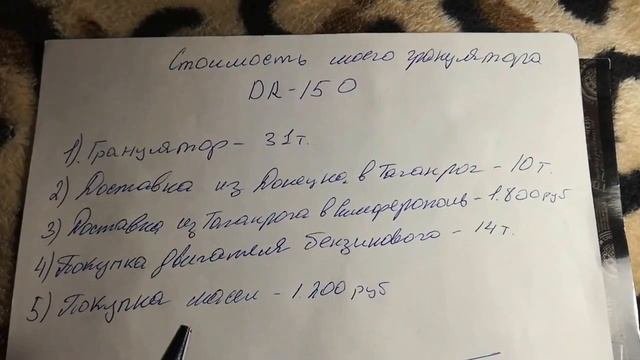 Стоимость моего гранулятора
DR-150
1) Гранулятор - 31т.
2) Доставка из Донецка в Таганрог - 10т.
3) Доставка из Таганрога в Симферополь - 1.800руб
4) Покупка двигателя бензинового - 14т.
5) Покупка масел - 1.200руб